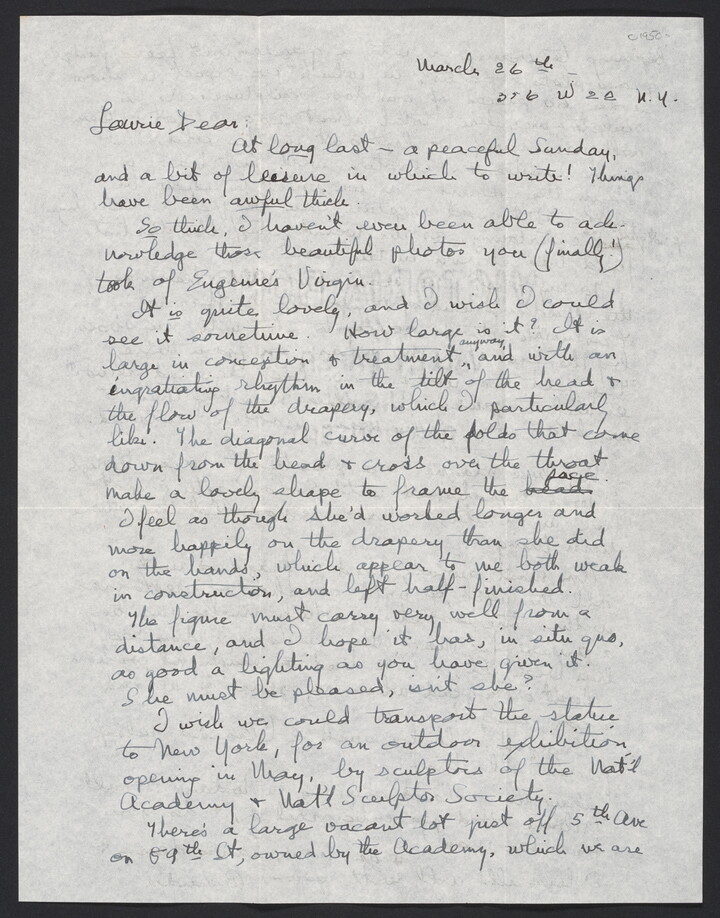 c1950-
March 26th -
356 W 22 N.Y.
Laurie Dear:
At long last - a peaceful Sunday,
and a bit of leisure in which to write! Things
have been awful thick.
So thick, I haven't even been able to ack-
nowledge those beautiful photos you (finally!)
took of Eugenie's Virgin.
It is quite lovely, and I wish I could
see it sometime. How large is it? It is
large in conception & treatment, anyway, and with an
ingratiating rhythm in the tilt of the head &
the flow of the drapery, which I particularly
like. The diagonal curve of the folds that come
down from the head & cross over the throat
make a lovely shape to frame the head face.
I feel as though she'd worked longer and
more happily on the drapery than she did
on the hands, which appear to me both weak
in construction, and left half-finished.
The figure must carry very well from a
distance, and I hope it has, in situ quo,
as good a lighting as you have given it.
She must be pleased, isn't she?
I wish we could transport the statue
to New York, for an outdoor exhibition
opening in May, by sculptors of the Nat'l
Academy & Nat'l Sculptor Society.
There's a large vacant lot just off 5th Ave
on 89th St, owned by the Academy, which we are